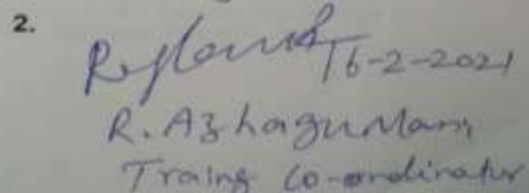 2.
16-2-2021
R. Azhagumani
Traing Co-ordinator